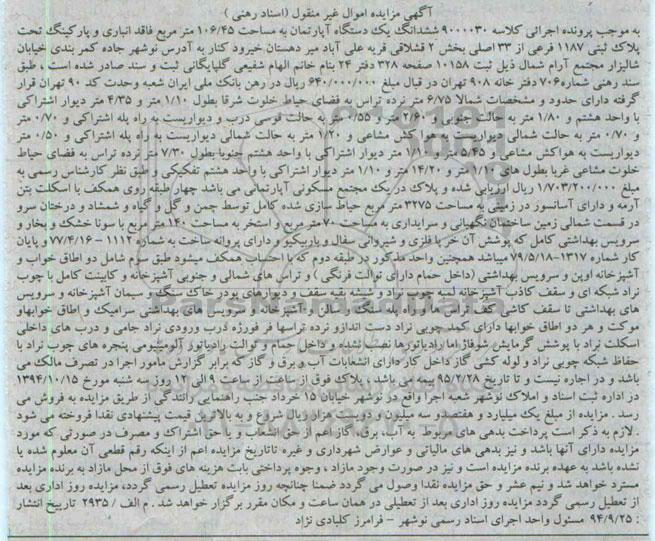 آگهی مزایده اموال غیر منقول (اسناد رهنی)
به موجب پرونده اجرائی کلاسه ۹۰۰۰۰۳۰ ششدانگ یک دستگاه آپارتمان به مساحت ۱۰۶/۴۵ متر مربع فاقد انباری و پارکینگ تحت
پلاک ثبتی ۱۱۸۷ فرعی از ۳۳ اصلی بخش ۲ قشلاقی قریه علی آباد میر دهستان خیرود کنار به آدرس نوشهر جاده کمر بندی خیابان
شالیزار مجتمع آرام شمال ذیل ثبت ۱۰۱۵۸ صفحه ۳۲۸ دفتر ۲۴ بنام خانم الهام شفیعی گلپایگانی ثبت و سند صادر شده است ، طبق
سند رهنی شماره ۷۰۶ دفتر خانه ۹۰۸ تهران در قبال مبلغ ۶۴۰/۰۰۰/۰۰۰ ریال در رهن بانک ملی ایران شعبه وحدت کد ۹۰ تهران قرار
گرفته دارای حدود و مشخصات شمالا ۶/۷۵ متر نرده تراس به فضای حیاط خلوت شرقا بطول ۱/۱۰ متر و ۴/۳۵ متر دیوار اشتراکی
با واحد هشتم و ۱/۸۰ متر به حالت جنوبی و ۲/۶۰ متر و ۰/۵۵ متر به حالت قوسی درب و دیواریست به راه پله اشتراکی و ۰/۷۰ متر
و ۰/۷۰ متر به حالت شمالی دیواریست به هوا کش مشاعی و ۱/۲۰ متر به حالت شمالی دیواریست به راه پله اشتراکی و ۰/۵۰ متر
دیواریست به هواکش مشاعی و ۵/۴۵ متر و ۱/۱۰ متر دیوار اشتراکی با واحد هشتم جنوبا بطول ۷/۳۰ متر نرده تراس به فضای حیاط
خلوت مشاعی غربا بطول های ۱/۱۰ متر و ۱۴/۲۰ متر و ۱/۱۰ متر دیوار اشتراکی با واحد هشتم تفکیکی و طبق نظر کارشناس رسمی به
مبلغ ۱/۷۰۳/۲۰۰/۰۰۰ ریال ارزیابی شده و پلاک در یک مجتمع مسکونی آپارتمانی می باشد چهار طبقه روی همکف با اسکلت بتن
آرمه و دارای آسانسور در زمینی به مساحت ۳۲۷۵ متر مربع حیاط سازی شده کامل توسط چمن و گل و گیاه و شمشاد و درختان سرو
در قسمت شمالی زمین ساختمان نگهبانی و سرایداری به مساحت ۷۰ متر مربع و استخر به مساحت ۱۴۰ متر مربع با سونا خشک و بخار و
سرویس بهداشتی کامل که پوشش آن خر با فلزی و شیروانی سفال و باربیکیو و دارای پروانه ساخت به شماره ۱۱۱۲ – ۷۷/۴/۱۶ و پایان
کار شماره ۱۳۱۷-۷۹/۵/۱۸ میباشد همچنین واحد مذکور در طبقه دوم که با احتساب همکف میشود طبق سوم شامل دو اطاق خواب و
آشپزخانه اوپن و سرویس بهداشتی (داخل حمام دارای توالت فرنگی) و تراس های شمالی و جنوبی آشپزخانه و کابینت کامل با چوب
نراد شبکه ای و سقف کاذب آشپزخانه لمبه چوب نراد و شیشه بقیه سقف و دیوارهای پودر خاک سنگ و سیمان آشپزخانه و سرویس
های بهداشتی تا سقف کاشی کف تراس ها و راه پله سنگ، سالن و آشپزخانه و سرویس های بهداشتی سرامیک و اطاق خوابها
موکت و هر دو اطاق خوابها دارای کمد چوبی نراد دست اندازو نرده تراسها فر فورژه درب ورودی نراد جامی و درب های داخلی
اسکلت نراد با پوشش گرمایش شوفاژ اما رادیاتورها نصب نشده و داخل حمام و توالت رادیاتور آلومینیومی پنجره های چوب نراد با
حفاظ شبکه چوبی نراد و لوله کشی گاز داخل کار دارای انشعابات آب و برق و گاز که برابر گزارش مامور اجرا در تصرف مالک می
باشد و در اجاره نیست و تا تاریخ ۹۵/۷/۲۸ بیمه می باشد ، پلاک فوق از ساعت از ساعت ۹ الی ۱۲ روز سه شنبه مورخ ۱۳۹۴/۱۰/۱۵
در اداره ثبت اسناد و املاک نوشهر شعبه اجرا واقع در نوشهر خیابان ۱۵ خرداد جنب راهنمایی رانندگی از طریق مزایده به فروش می
رسد . مزایده از مبلغ یک میلیارد و هفتصدو سه میلیون و دویست هزار ریال شروع و به بالاترین قیمت پیشنهادی نقدا فروخته می شود
.لازم به ذکر است پرداخت بدهی های مربوط به آب، برق، گاز اعم از حق انشعاب و یا حق اشتراک و مصرف در صورتی که مورد
مزایده دارای آنها باشد و نیز بدهی های مالیاتی و عوارض شهرداری و غیره تاتاریخ مزایده اعم از اینکه رقم قطعی آن معلوم شده یا
نشده باشد به عهده برنده مزایده است و نیز در صورت وجود مازاد ، وجوه پرداختی بابت هزینه های فوق از محل مازاد به برنده مزایده
مسترد خواهد شد و نیم عشر و حق مزایده نقدا وصول می گردد ضمنا چنانچه روز مزایده تعطیل رسمی گردد، مزایده روز اداری بعد
از تعطیل رسمی گردد مزایده روز اداری بعد از تعطیلی در همان ساعت و مکان مقرر برگزار خواهد شد . م الف / ۲۹۳۵ تاریخ انتشار
: ۹۴/۹/۲۵ مسئول واحد اجرای اسناد رسمی نوشهر – فرامرز کلبادی نژاد
ParsNamadData